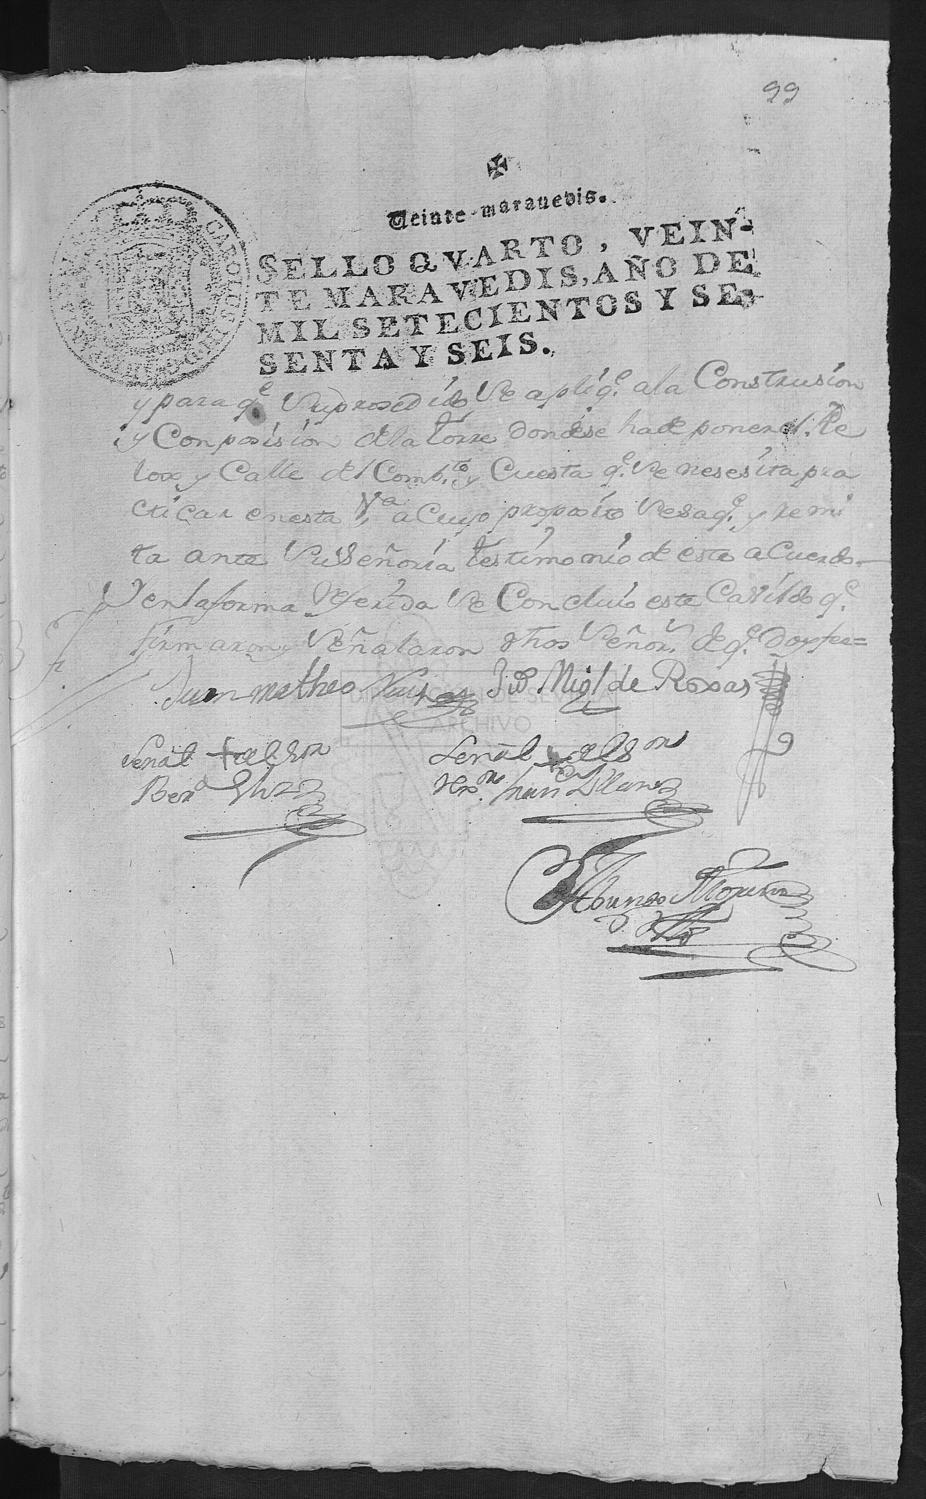 99
Veinte maravedis.
SELLO QVARTO, VEIN-
TE MARAVEDIS, AÑO DE
MIL SETECIENTOS Y SE-
SENTA Y SEIS.
CAROLUS III D G HISPANIAR
y para q.e Su prosedido Se apliq.e a la Construsion
y Conposision de la torre donde se ha de poner el Re
lox y Calle del Comb.to y Cuesta q.e Se nesesita pra
cticar en esta V.a a Cuyo proposito Se saq.e y remi
ta ante Su Señoria testimonio de este aCuerdo
Y en la forma Referida Se Concluio este Cavildo q.e
firmaron y Señalaron dhos Señor.s de q.e Doy fee=
Juan matheo Ju.o Mig.l de Roxas
DE SEVILLA
ARCHIVO
Señal + del S.or Señal + del S.or
Ber.do